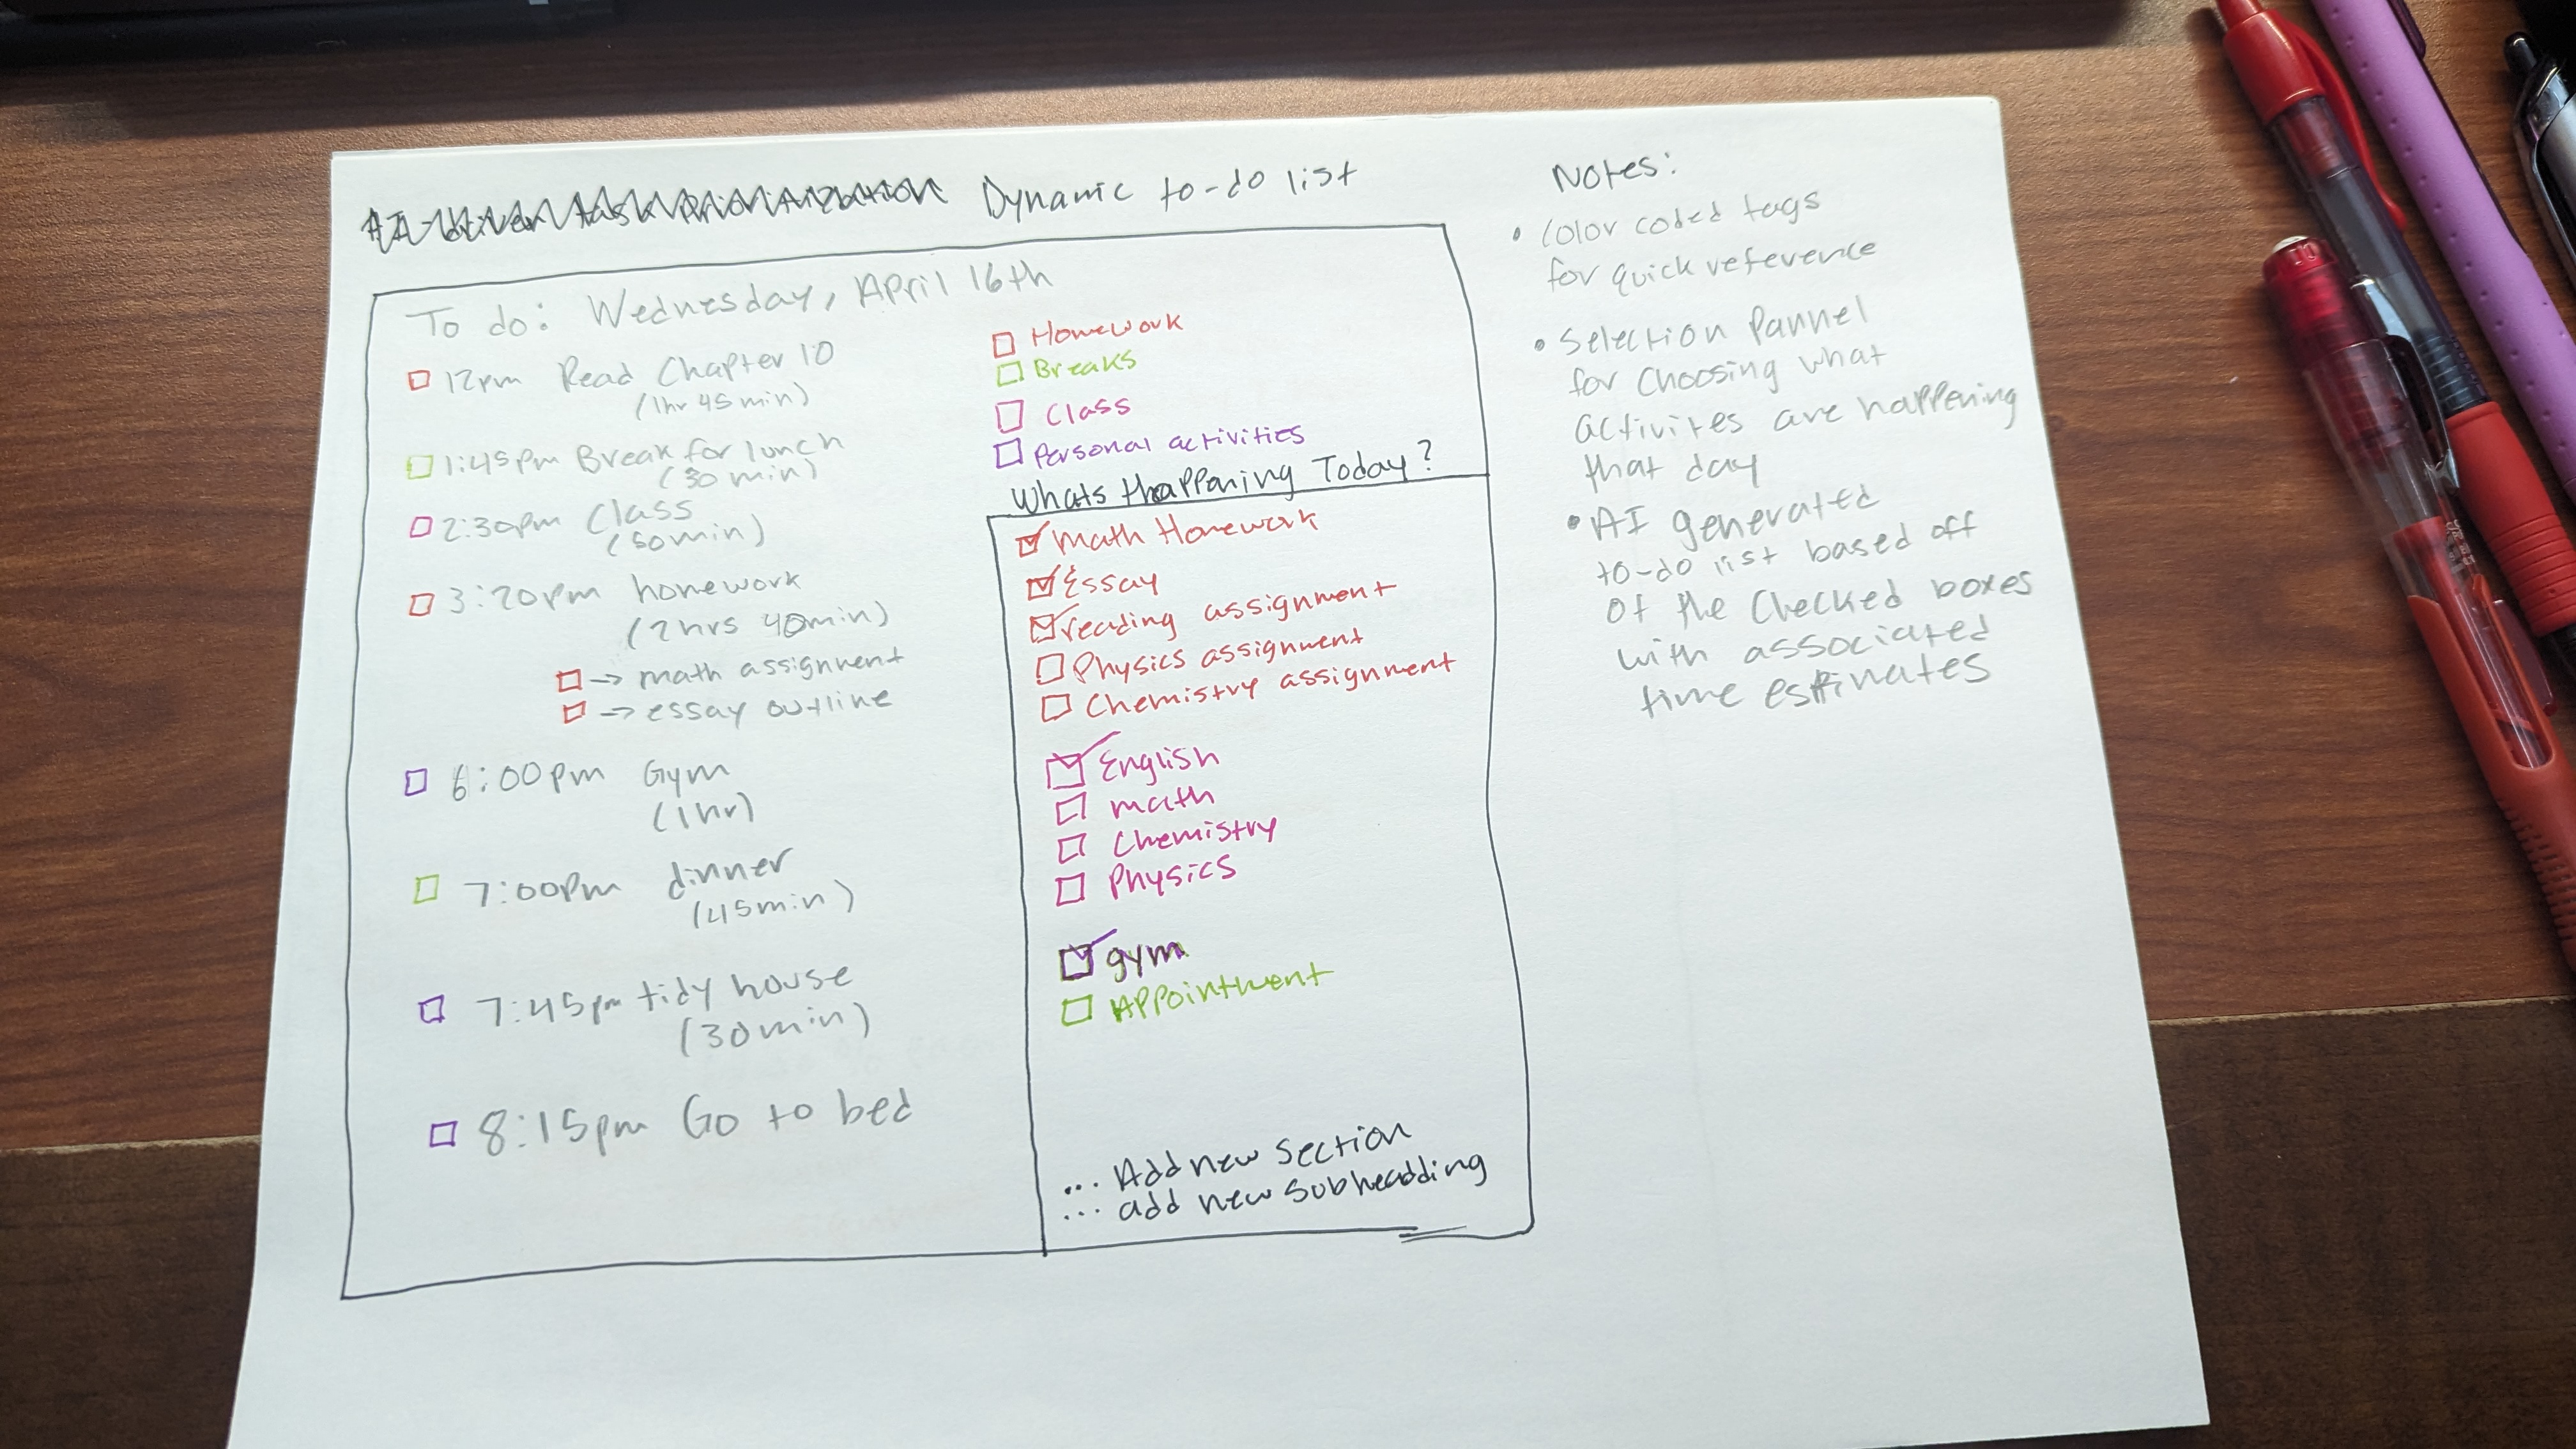 AI-driven task prioritization Dynamic to-do list
To do: Wednesday, April 16th
12pm Read Chapter 10
(1hr 45min)
1:45pm Break for lunch
(30 min)
2:30pm Class
(50min)
3:20pm homework
(2hrs 40min)
→ math assignment
→ essay outline
6:00pm Gym
(1hr)
7:00pm dinner
(45min)
7:45pm tidy house
(30min)
8:15pm Go to bed
Homework
Breaks
Class
Personal activities
Whats happening Today?
Math Homework
Essay
reading assignment
Physics assignment
Chemistry assignment
English
math
Chemistry
Physics
gym
Appointment
... Add new section
... add new subheadding
Notes:
• Color coded tags
for quick reference
• Selection Pannel
for choosing what
activites are happening
that day
• AI generated
to-do list based off
of the Checked boxes
with associated
time estimates